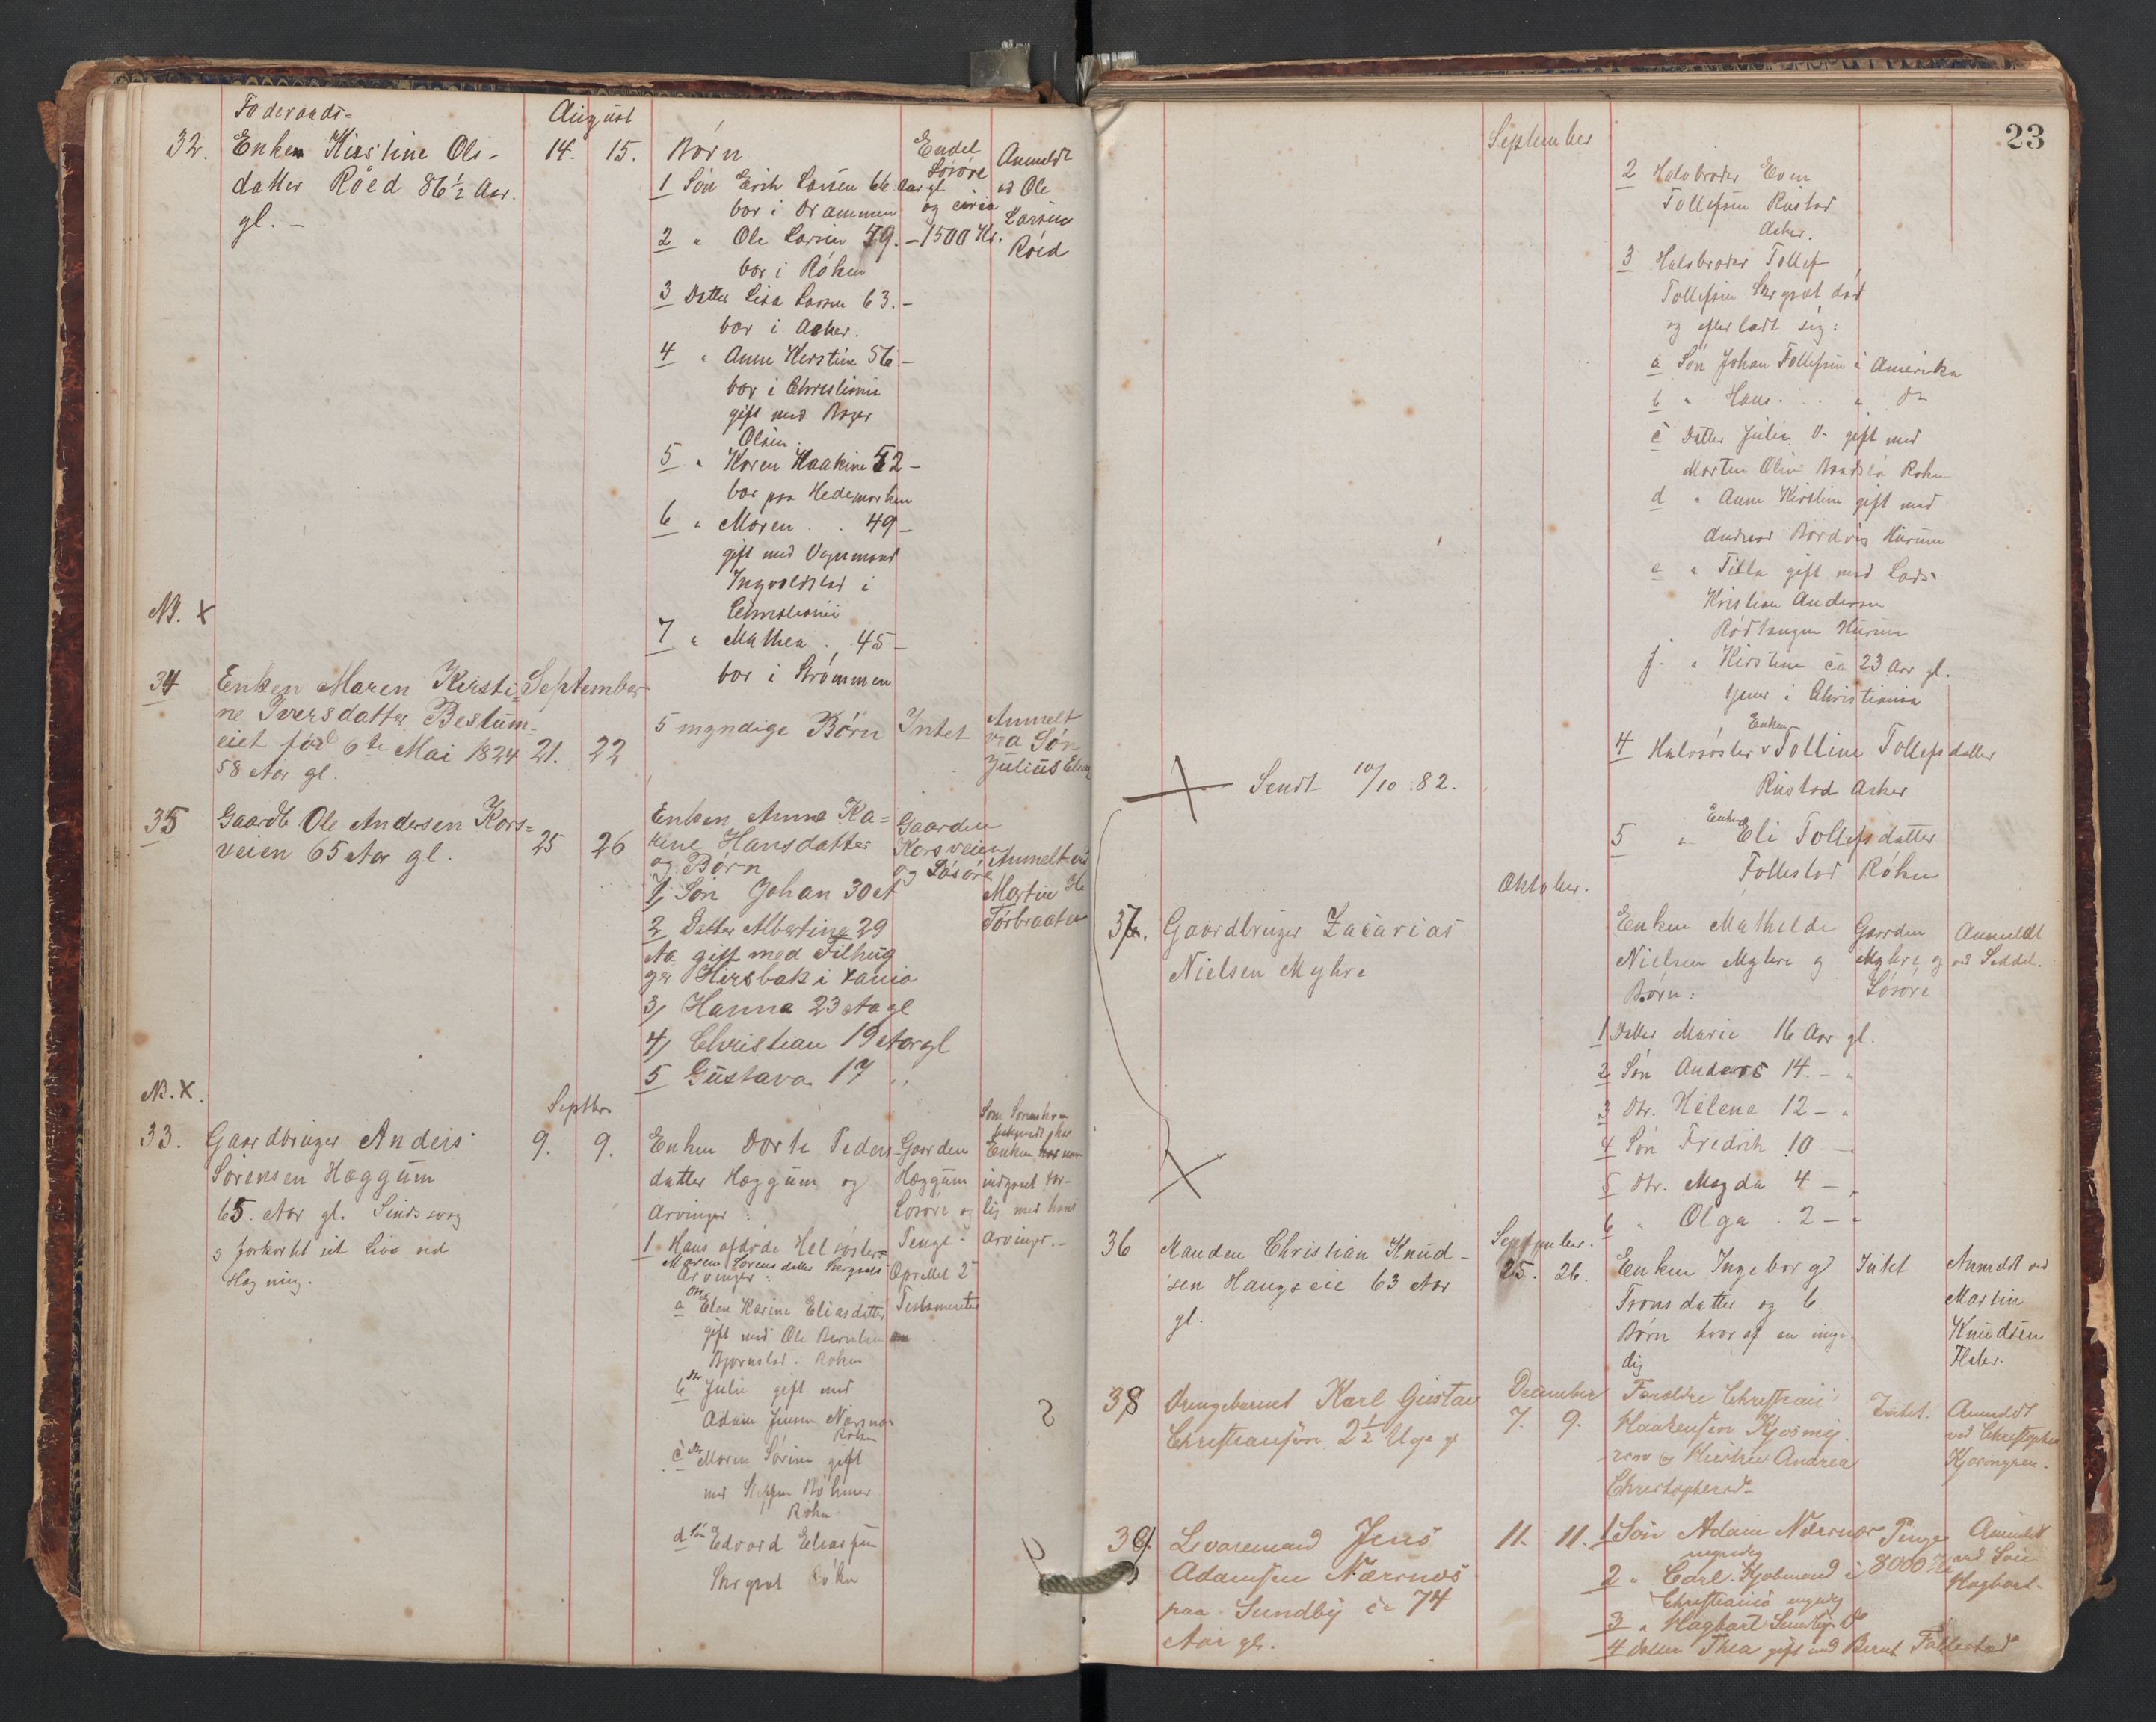 Foderaads-
32. Enken Kirstine Ols-
datter Röed 86 1/2 Aar
gl. -
August
14. 15.
Börn
1 Sön Erik Larsen 66 Aar gl
bor i Drammen
2 " Ole Larsen 59. -
bor i Röken
3 Datter Lisa Larsen 63. -
bor i Asker.
4 " Anne Kirstine 56 -
bor i Christiania
gift med Bager
Olsen.
5 " Karen Haakine 52 -
bor paa Hedemarken
6 " Maren . . 49 -
gift med Vognmand
Ingvoldstad i
Christiania
7 " Mathea . . 45 -
bor i Strömmen
Endel
Lösöre
og circa
1500 Kr.
Anmeldt
ved Ole
Larsen
Röed
NB. x
34 Enken Maren Kirsti-
ne Iversdatter Bestum-
eiet föd 6te Mai 1824
58 Aar gl.
September
21. 22
5 myndige Börn
Intet
Anmelt
ved Sön
Julius
35 Gaardb Ole Andersen Kors-
veien 65 Aar gl.
25 26
Enken Anne Ka-
rine Hansdatter
og Börn
1, Sön Johan 30 A
2 Datter Albertine 29
Aa gift med
i
3, Hanna 23 Aa gl
4, Christian 19 Aar gl
5 Gustava 17 "
Gaarden
Korsveien
og Lösöre
Anmelt ved
Martin H
Torbraaten
NB. X.
33. Gaardbruger Anders
Sörensen Hæggum
65. Aar gl. Sindssvag
o forkortet sit Liv ved
Hægning.
Septbr.
9. 9.
Enken Dorte Peders-
datter Hæggum og
Arvinger:
1 Hans afdöde Helsösters
Maren Sörensdatter Skrysets
Arvinger:
a Dtr. Elen Karine Eliasdatter
gift med Ole
Bjornstad. Röken
b Dtr. Julie gift med
Adam Jensen Nærsnæs
Röken
c Dtr. Maren Sörine gift
med
Röken
d Sön Edvard Eliassen
Skryset Röken
Gaarden
Hæggum
Lösöre og
Penge.
Oprettet 2
Testamenter
Enken
indgaaet for-
lig med hans
Arvinger. -
23
September
2 Halvbroder Even
Tollefsen Rustad
Asker.
3 Halvbroder Tollef
Tollefsen Skryset död
og efterladt sig:
a Sön Johan Tollefsen i Amerika
b " Hans . . . " do
c Datter Julie D- gift med
Morten Olsen Röken
d " Anne Kirstine gift med
Andreas Hurum
e " Tilla gift med Lods
Kristian Andersen
Rödtangen Hurum
f. " Kirstine ca 23 Aar gl.
tjener i Christiania
4 Halvsöster Enken Tolline Tollefsdatter
Rustad Asker
5 " Enken Eli Tollefsdatter
Follestad Röken
Sendt 10/10 82.
Oktober.
37. Gaardbruger Zacarias
Nielsen Myhre
Enken Mathilde
Nielsen Myhre og
Börn:
1 Datter Marie 16 Aar gl.
2 Sön Anders 14 - "
3 Dtr. Helene 12 - "
4 Sön Fredrik 10 -
5 Dtr. Magda 4 - "
6 " Olga . 2 - "
Gaarden
Myhre og
Lösöre
Anmeldt
ved Seddel.
36 Manden Christian Knud-
sen Haugseie 63 Aar
gl.
September.
25. 26.
Enken Ingeborg
Tronsdatter og 6
Börn hvoraf en umyn-
dig
Intet
Anmeldt ved
Martin
Knudsen
38 Drengebarnet Karl Gustav
Christiansen 2 1/2 Uge gl
December
7. 9.
Forældre Christian
Haakensen Kjosmy-
ren og Hustru Andrea
Christophersd-
Intet.
Anmeldt
ved Christopher
Kjosmyren.
39. Levaremand Jens
Adamsen Nærsnæs
paa Sundby ca 74
Aar gl.
11. 11.
1 Sön Adam Nærsnæs
myndig
2 " Carl Kjöbmand i
Christiania myndig
3 " Hagbart Sundby do
4 Datter Thea gift med Bernt Follestad
Penge
8000 Kr
Anmeldt
ved Sön
Hagbart.